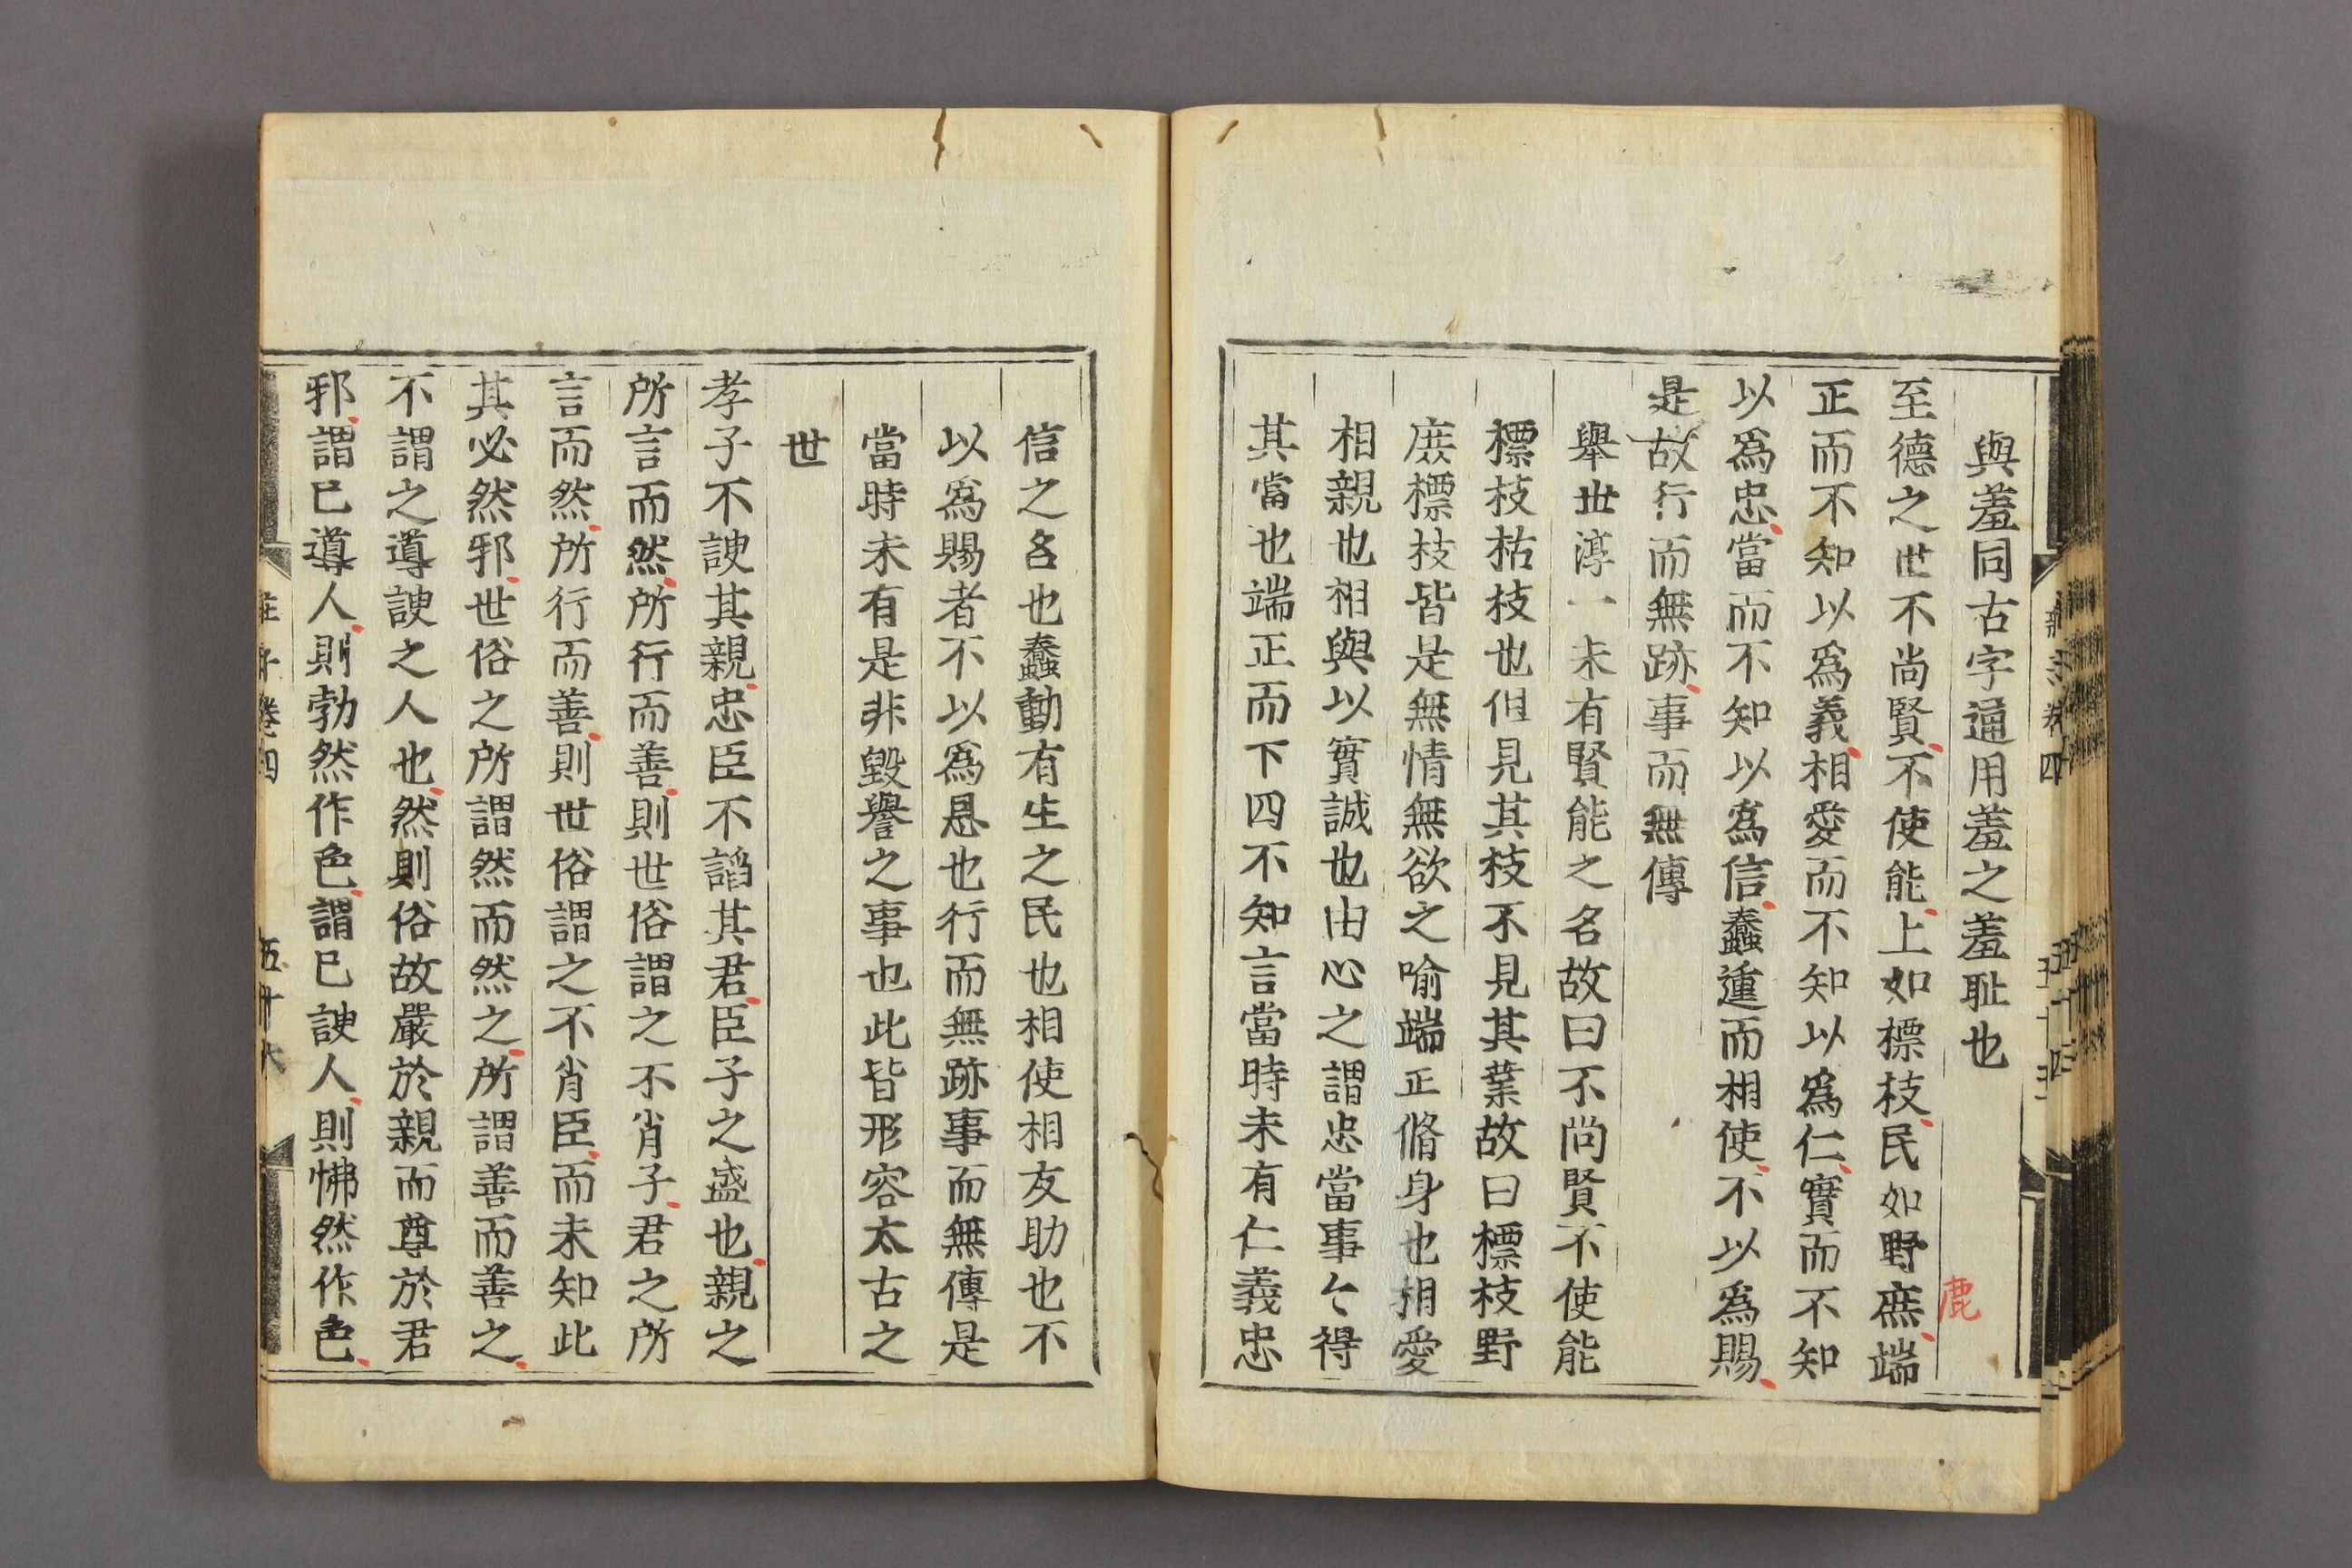 與羞同古字通用羞之羞耻也
至德之世不尚賢不使能上如標枝民如野㢘端
鹿
正而不知以爲義相愛而不知以爲仁實而不知
以爲忠當而不知以爲信蠢動而相使不以爲賜
是故行而無跡事而無傳
舉世淳一未有賢能之名故曰不尚賢不使能
標枝枯枝也但見其枝不見其葉故曰標枝野
標枝皆是無情無欲之喻端正脩身也相愛
相親也相與以實誠也由心之謂忠當事々得
其當也端正而下四不知言當時未有仁義忠
信之名也蠢動有生之民也相使相友助也不
以爲賜者不以爲恩也行而無跡事而無傳是
當時未有是非毀譽之事也此皆形容太古之
世
孝子不諛其親忠臣不諂其君臣子之盛也親之
所言而然所行而善則世俗謂之不肖子君之所
言而然所行而善則世俗謂之不肖臣而未知此
其必然邪世俗之所謂然而然之所謂善而善之
不謂之導諛之人也然則俗故嚴於親而尊於君
邪謂已導人則勃然作色謂已諛人則怫然作色
莊子卷四
五十六